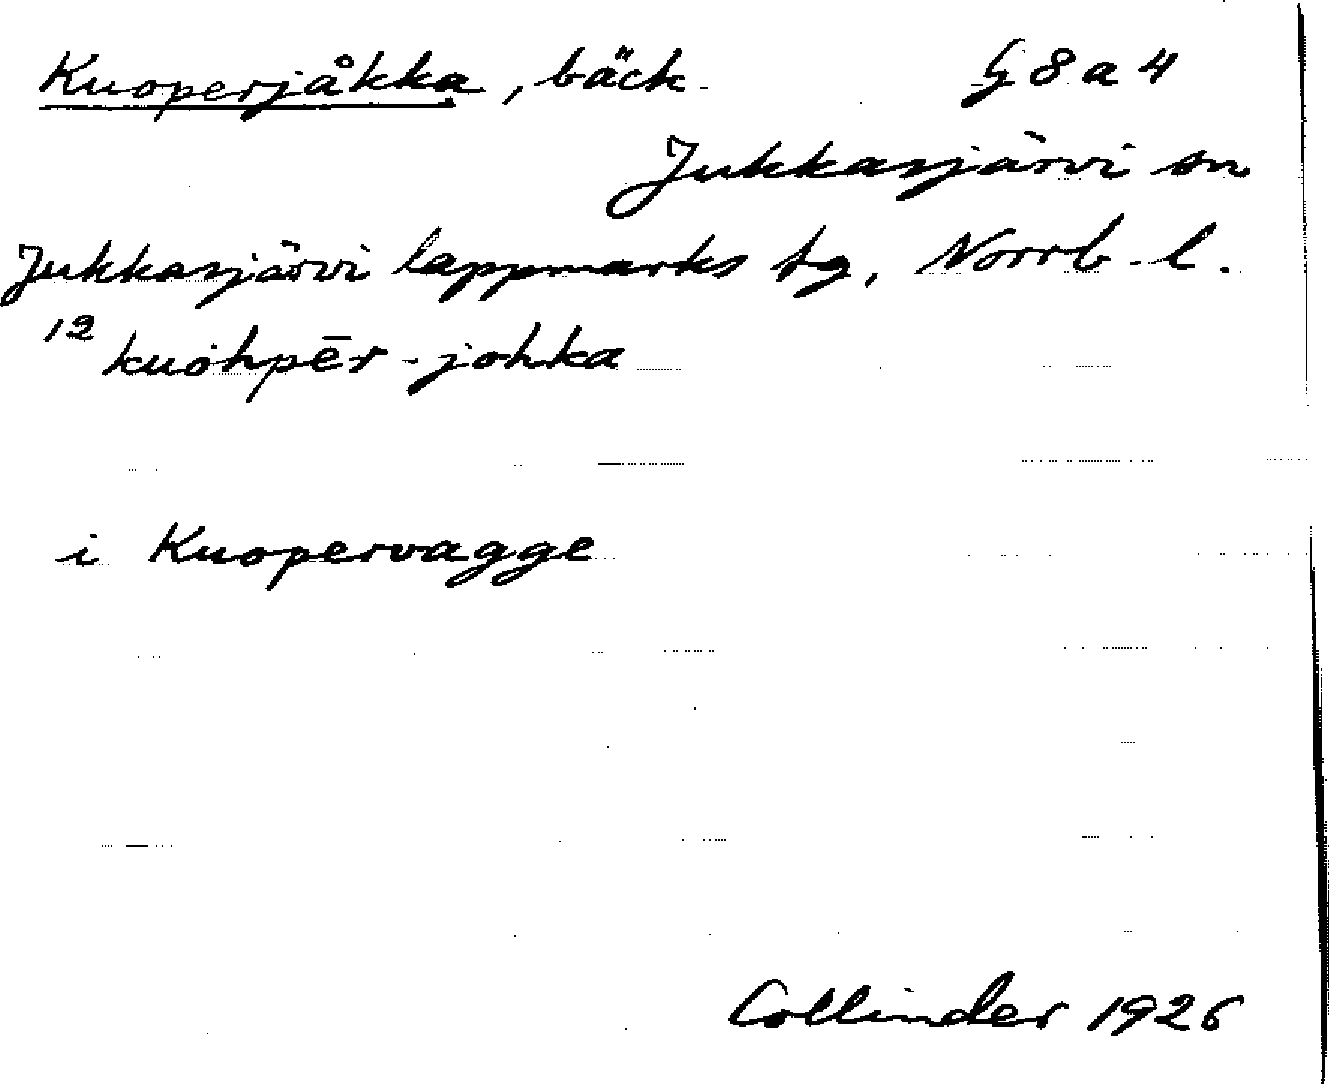 Kuoperjåkka, bäck. G 8 a 4
Jukkasjärvi sn
Jukkasjärvi lappmarks tg, Norrb. l.
12 kuȯhpēr-johka
i Kuopervagge
Collinder 1926